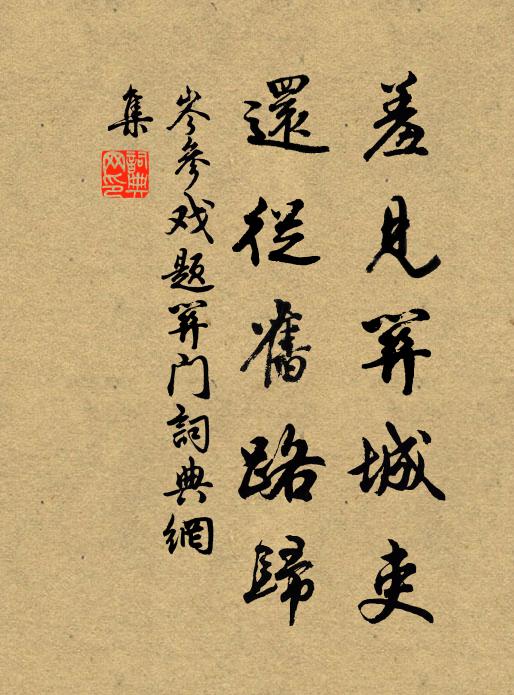 羞見關城吏
還從舊路歸
岑參戏题關门詞典網
集
詞典
网印